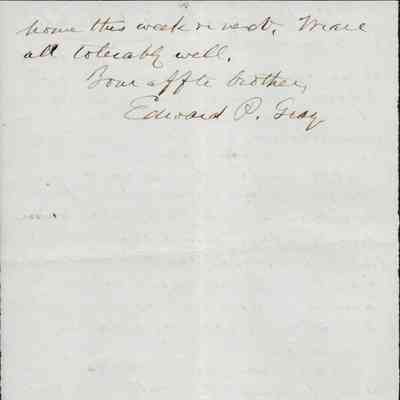 home this week or next. We are
all tolerably well.
Your affte brother,
Edward P. Gray